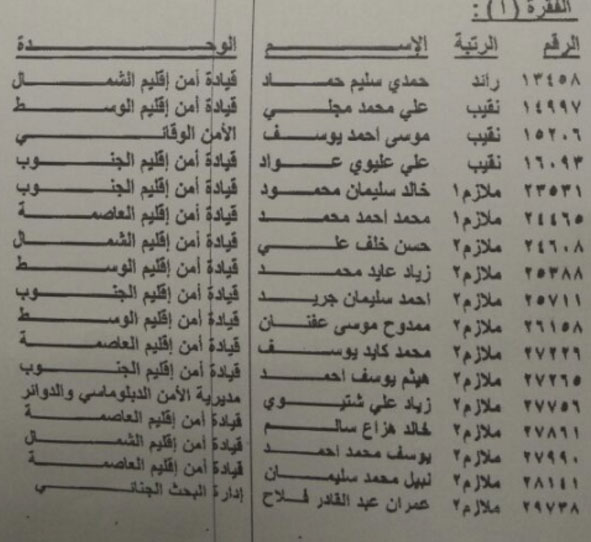 الفقرة (١) :
الرقم الرتبة الإسم الوحدة
١٣٤٥٨ رائد حمدي سليم حماد قيادة أمن إقليم الشمال
١٤٩٩٧ نقيب علي محمد مجلي قيادة أمن إقليم الوسط
١٥٢٠٦ نقيب موسى احمد يوسف الأمن الوقائي
١٦٠٩٣ نقيب علي عليوي عواد قيادة أمن إقليم الجنوب
٢٣٥٣١ ملازم١ خالد سليمان محمود قيادة أمن إقليم الجنوب
٢٤٤٦٥ ملازم١ محمد احمد محمد قيادة أمن إقليم العاصمة
٢٤٦٠٨ ملازم٢ حسن خلف علي قيادة أمن إقليم الشمال
٢٥٣٨٨ ملازم٢ زياد عايد محمد قيادة أمن إقليم الوسط
٢٥٧١١ ملازم٢ احمد سليمان جريد قيادة أمن إقليم الجنوب
٢٦١٥٨ ملازم٢ ممدوح موسى عفنان قيادة أمن إقليم الوسط
٢٧٢٢٩ ملازم٢ محمد كايد يوسف قيادة أمن إقليم العاصمة
٢٧٢٦٥ ملازم٢ هيثم يوسف احمد قيادة أمن إقليم الجنوب
٢٧٧٥٦ ملازم٢ زياد علي شتيوي مديرية الأمن الدبلوماسي والدوائر
٢٧٨٦١ ملازم٢ خالد هزاع سالم قيادة أمن إقليم العاصمة
٢٧٩٩٠ ملازم٢ يوسف محمد احمد قيادة أمن إقليم الشمال
٢٨١٤١ ملازم٢ نبيل محمد سليمان قيادة أمن إقليم العاصمة
٢٩٧٣٨ ملازم٢ عمران عبد القادر فلاح إدارة البحث الجنائي